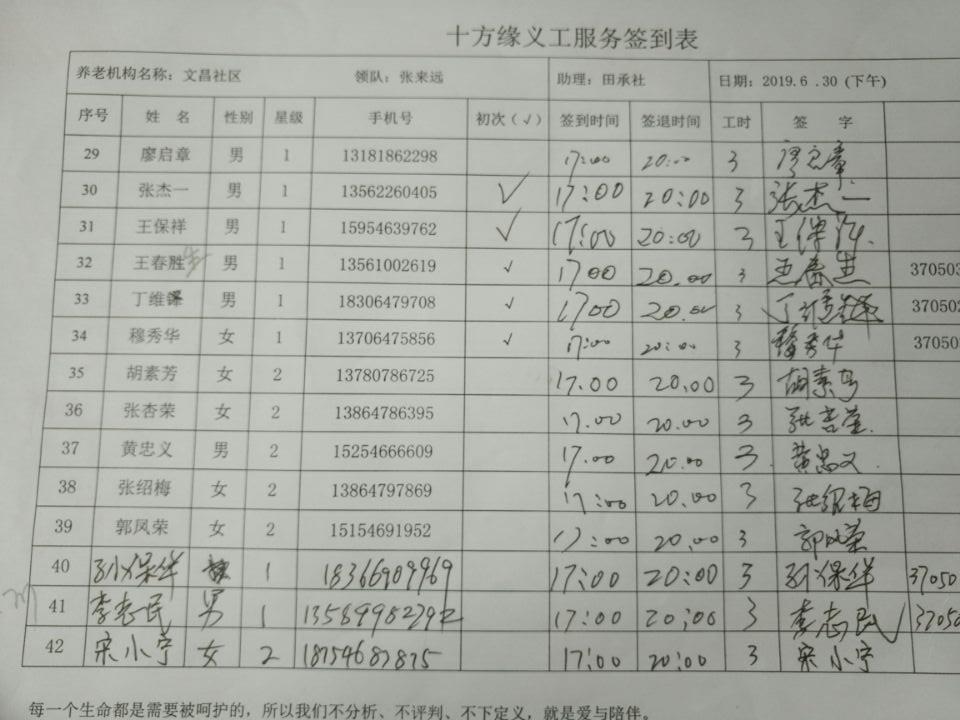 十方缘义工服务签到表
养老机构名称：文昌社区 领队：张来远 助理：田承社 日期：2019.6 .30 (下午)
序号 姓 名 性别 星级 手机号 初次（√） 签到时间 签退时间 工时 签 字
29 廖启章 男 1 13181862298 17:00 20:00 3 廖启章
30 张杰一 男 1 13562260405 √ 17:00 20:00 3 张杰一
31 王保祥 男 1 15954639762 √ 17:00 20:00 3 王保祥.
32 王春胜 男 1 13561002619 √ 1700 20.00 3 王春生 370503
33 丁维 男 1 18306479708 √ 1700 20.00 3 370502
34 穆秀华 女 1 13706475856 √ 17:00 20:00 3 穆秀华 370503
35 胡素芳 女 2 13780786725 17.00 20.00 3 胡素芳
36 张杏荣 女 2 13864786395 17.00 20.00 3 张杏荣.
37 黄忠义 男 2 15254666609 17.00 20.00 3. 黄忠义.
38 张绍梅 女 2 13864797869 17:00 20.00 3 张绍梅
39 郭凤荣 女 2 15154691952 17:00 20.00 3 郭凤荣
40 孙保华 1 18366909969 17:00 20:00 3 孙保华 37050
41 李志民 男 1 17:00 20:00 3 李志民 37050
42 宋小宁 女 2 18754687875 17:00 20:00 3 宋小宁
每一个生命都是需要被呵护的，所以我们不分析、不评判、不下定义，就是爱与陪伴。